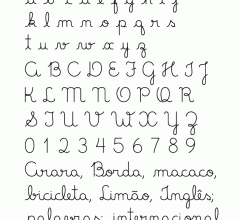 a b c d e f g h i j
k l m n o p q r s
t u v w x y z
A B C D E F G H I J
K L M N O P Q R
S T U V W X Y Z
0 1 2 3 4 5 6 7 8 9
Arara, Borda, macaco,
bicicleta, Limão, Inglês;
palavras: internacional